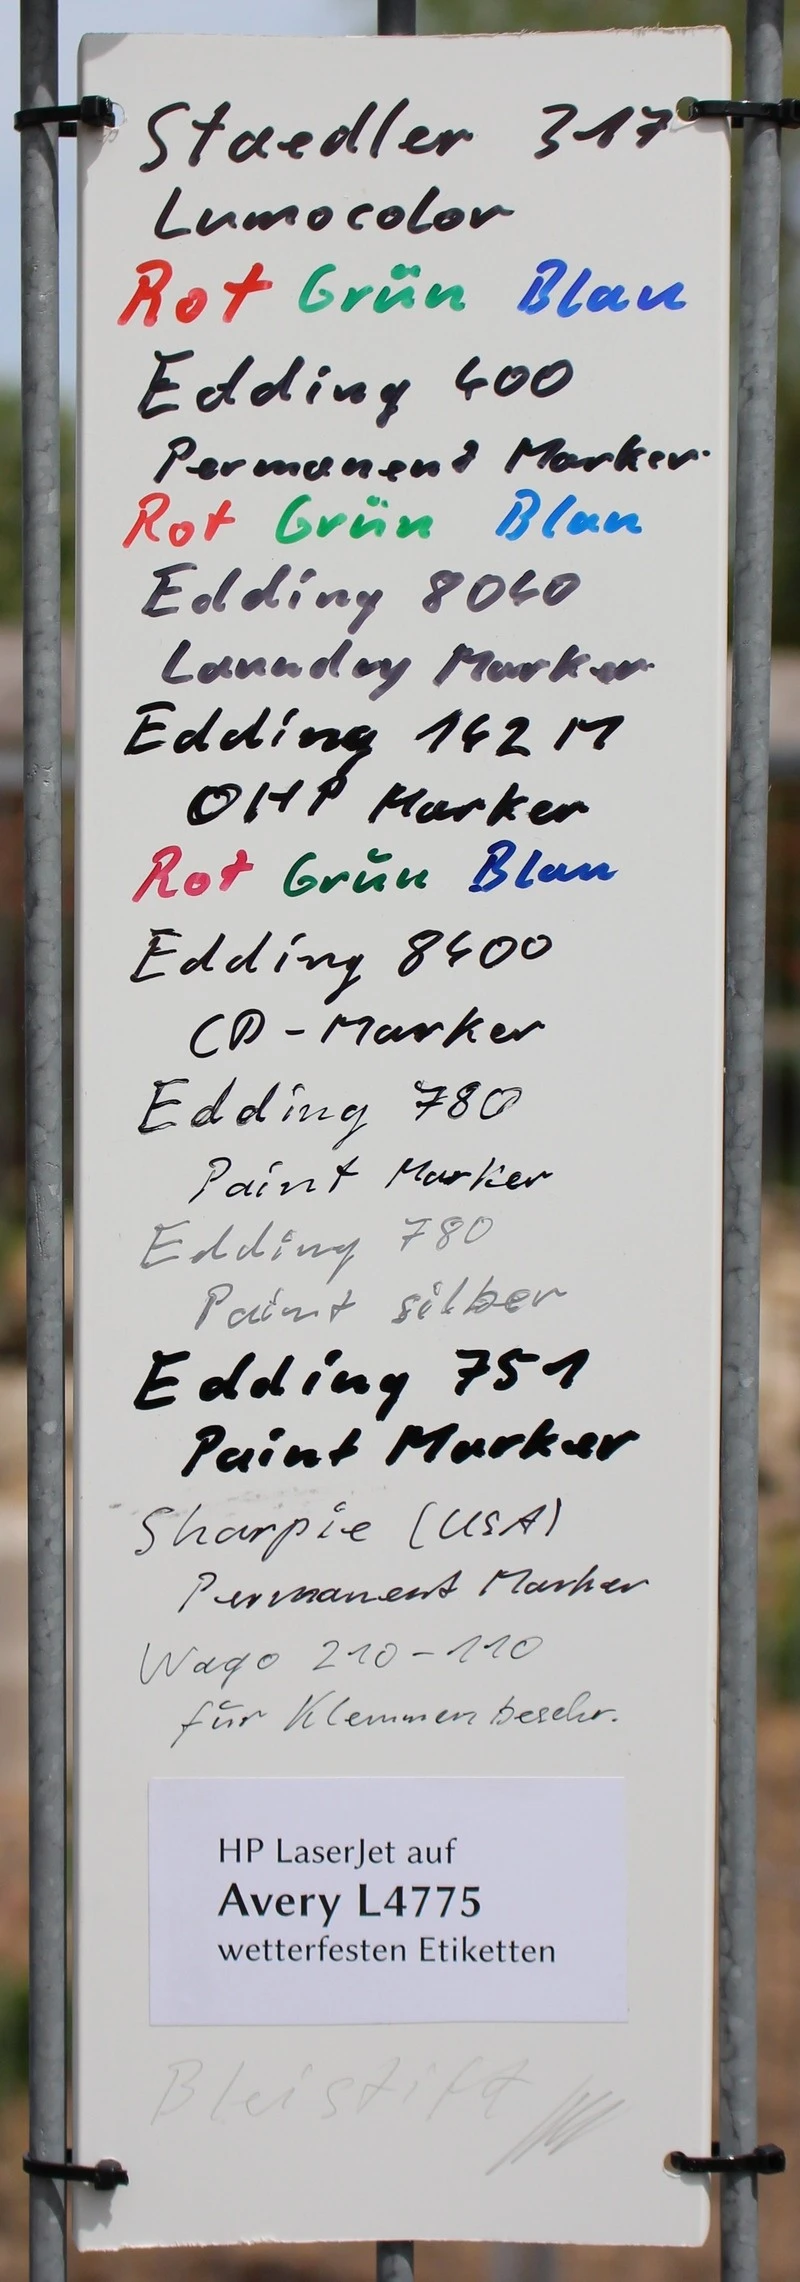 Staedler 317
Lumocolor
Rot Grün Blau
Edding 400
Permanent Marker
Rot Grün Blau
Edding 8040
Laundry Marker
Edding 142 M
OHP Marker
Rot Grün Blau
Edding 8400
CD-Marker
Edding 780
Paint Marker
Edding 780
Paint silber
Edding 751
Paint Marker
Sharpie (USA)
Permanent Marker
Wago 210-110
für Klemmenbeschr.
HP LaserJet auf
Avery L4775
wetterfesten Etiketten
Bleistift